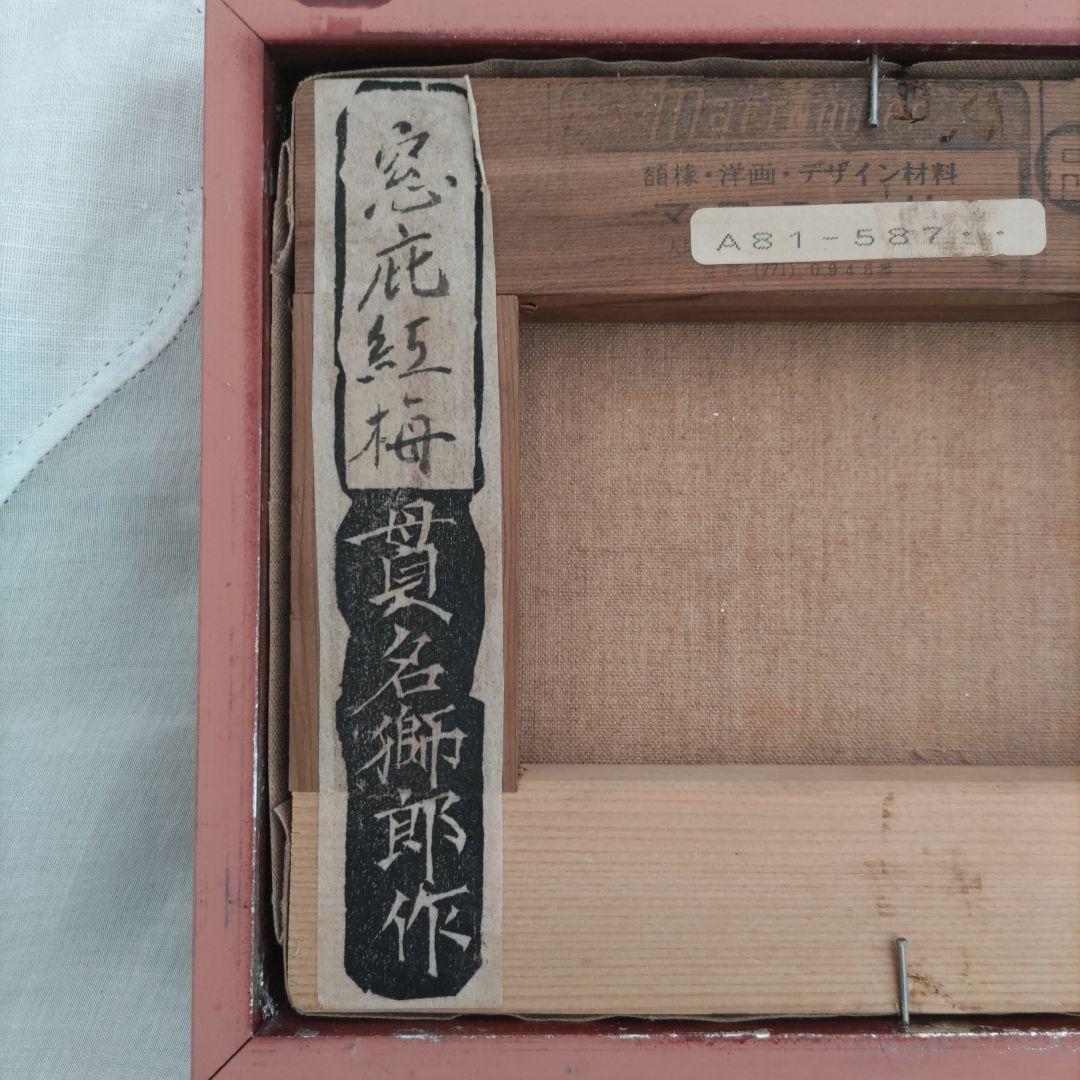 窓庇紅梅
貫名獅郎作
額椽・洋画・デザイン材料
A81-587
(771) 0946番